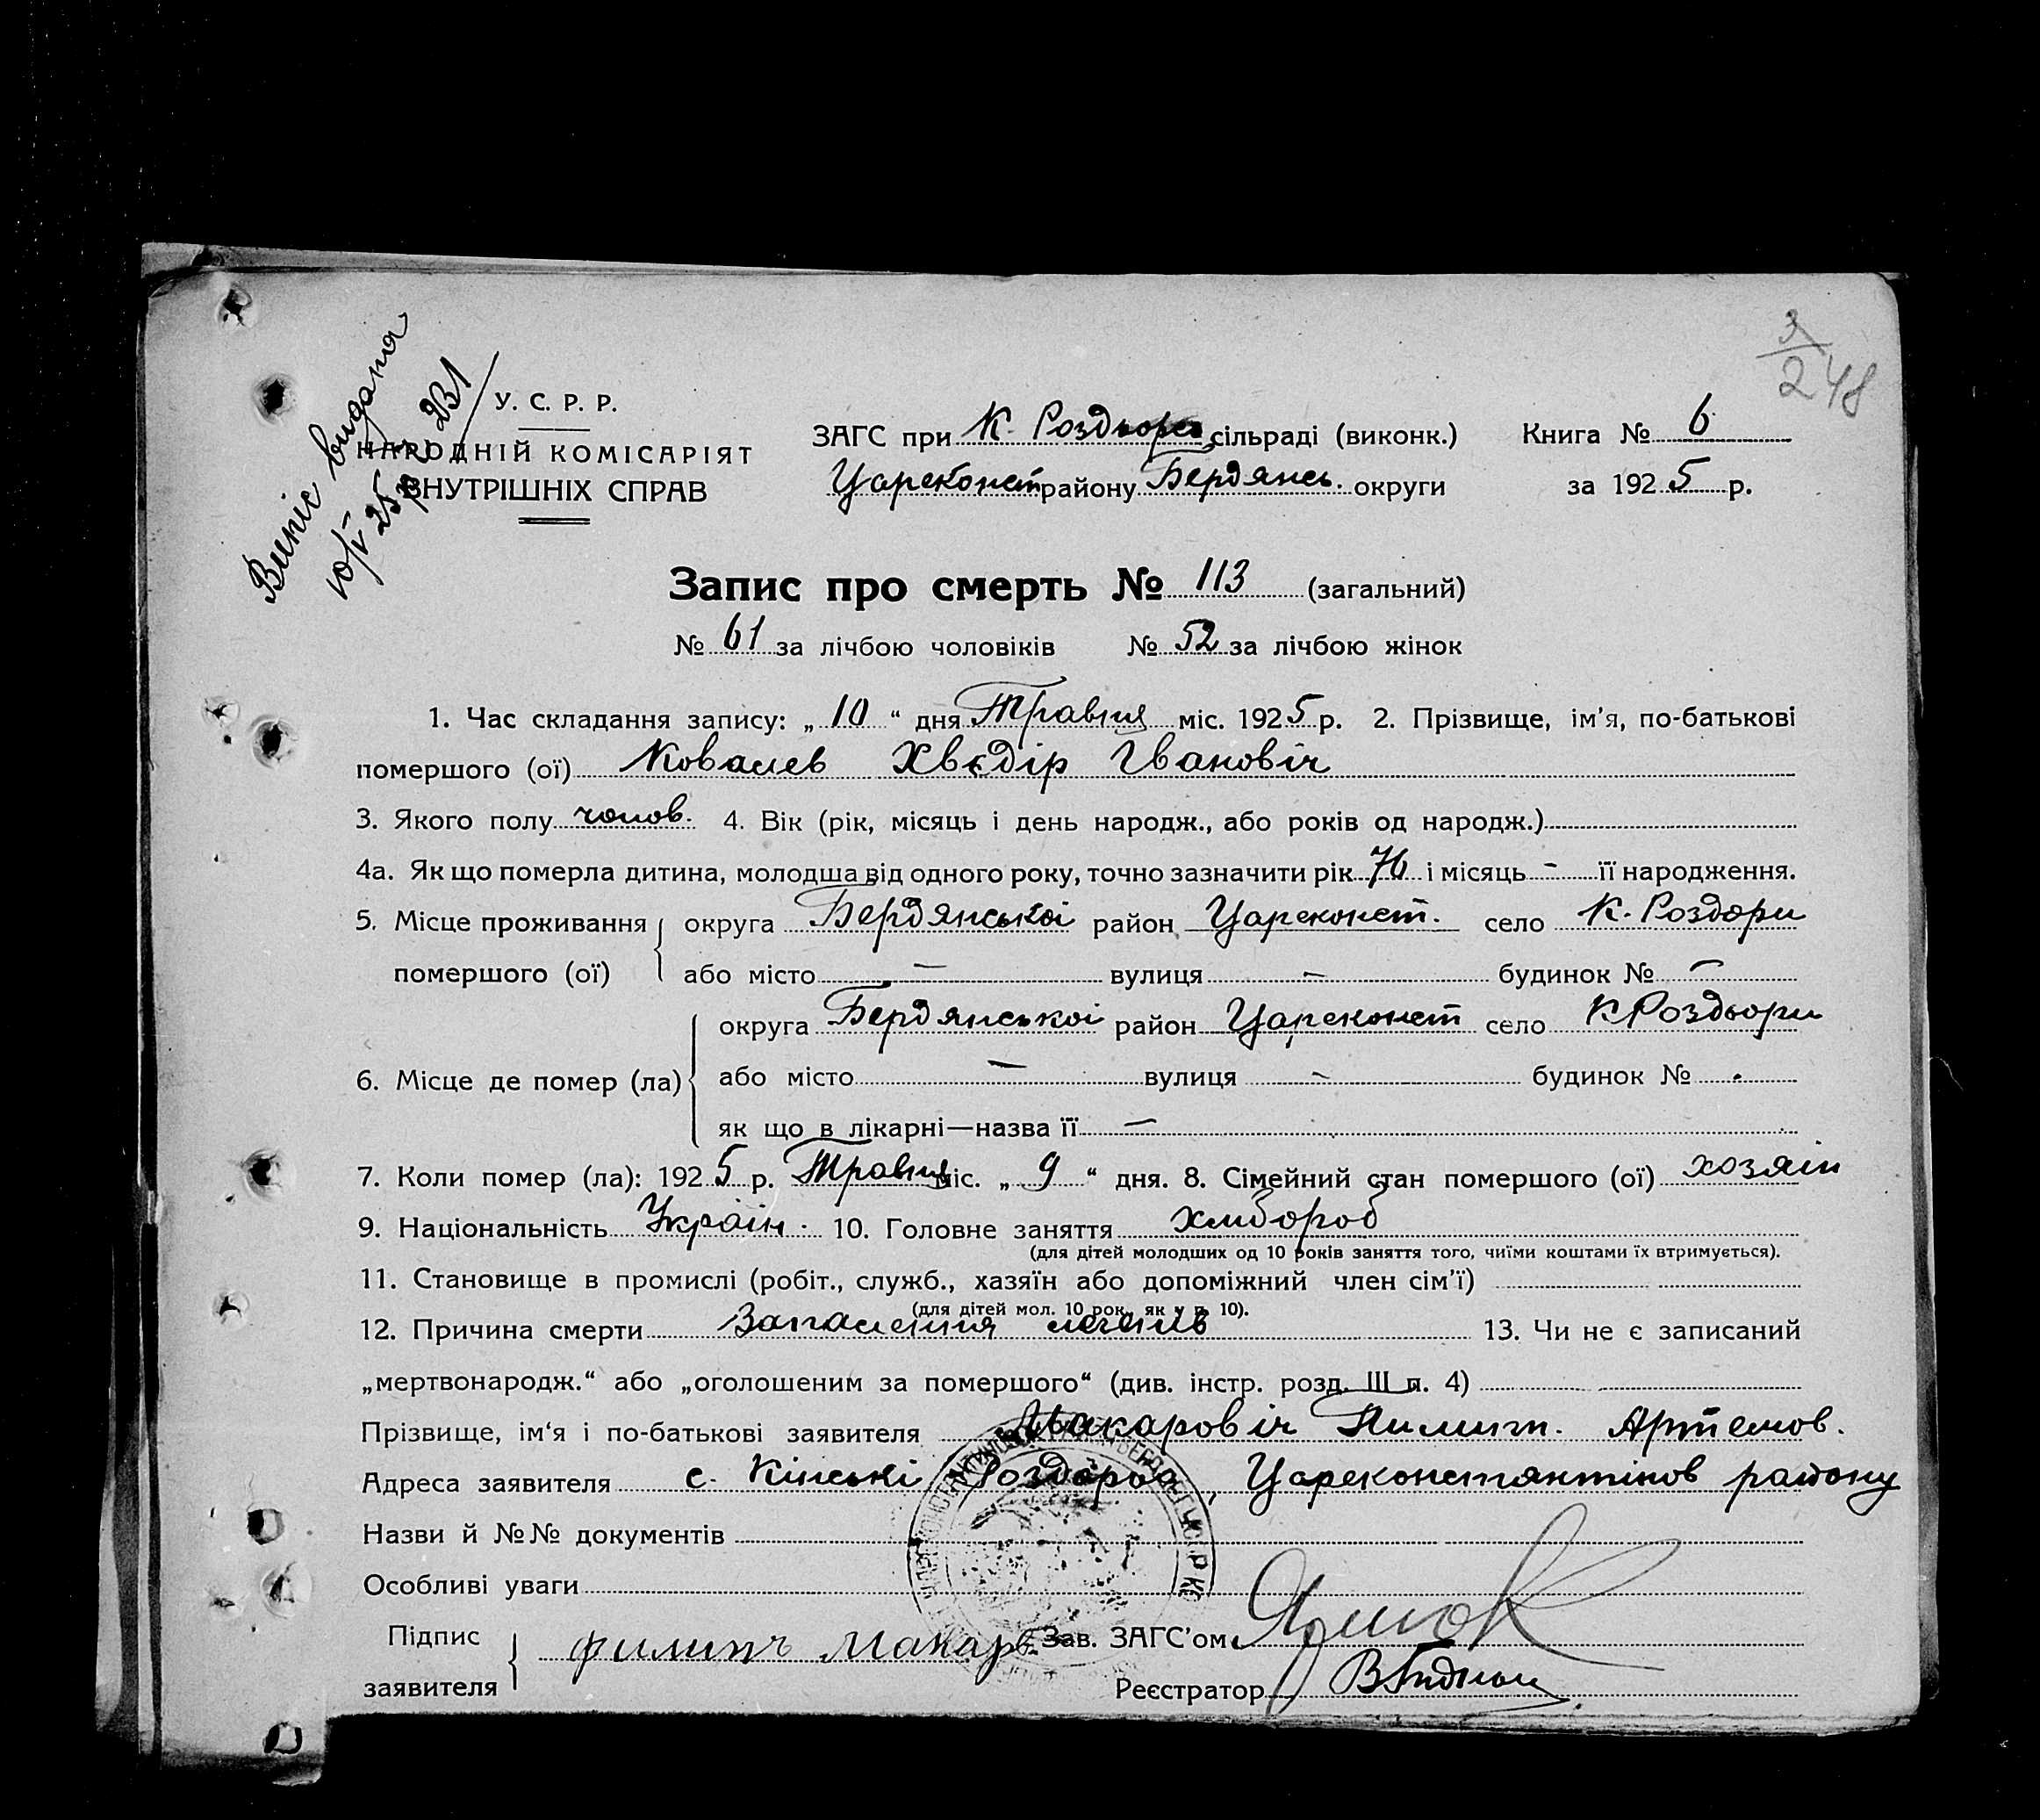 Випіс видана
10/V 25 р № 231
3/248
У. С. Р. Р.
НАРОДНІЙ КОМІСАРІЯТ
ВНУТРІШНІХ СПРАВ
ЗАГС при К. Роздорс. сільраді (виконк.) Книга № 6
Цареконст району Бердянсь. округи за 1925 р.
Запис про смерть № 113 (загальний)
№ 61 за лічбою чоловіків № 52 за лічбою жінок
1. Час складання запису: „10“ дня Травня міс. 1925 р. 2. Прізвище, ім'я, по-батькові
помершого (ої) Ковалев Хвєдір Іванович
3. Якого полу чолов. 4. Вік (рік, місяць і день народж., або років од народж.)
4а. Як що померла дитина, молодша від одного року, точно зазначити рік 76 і місяць - її народження.
5. Місце проживання округа Бердянської район Цареконст. село К. Роздори
помершого (ої) або місто — вулиця — будинок № —
округа Бердянської район Цареконст село К Роздьори
6. Місце де помер (ла) або місто — вулиця - будинок № -
як що в лікарні—назва її —
7. Коли помер (ла): 1925 р. Травня міс. „9“ дня. 8. Сімейний стан помершого (ої) хозяін
9. Національність Украін. 10. Головне заняття хлібороб
(для дітей молодших од 10 років заняття того, чиїми коштами їх втримується).
11. Становище в промислі (робіт., служб., хазяїн або допоміжний член сім'ї)
(для дітей мол. 10 рок. як у п. 10).
12. Причина смерти Запалення легенів 13. Чи не є записаний
„мертвонародж.“ або „оголошеним за помершого“ (див. інстр. розд. III п. 4)
Прізвище, ім'я і по-батькові заявителя Макаровіч Пилип. Артемов.
Адреса заявителя с. Кінські Роздори, Цареконстянтінов району
Назви й №№ документів
Особливі уваги
Підпис заявителя филипъ Макаров Зав. ЗАГС'ом
Реєстратор